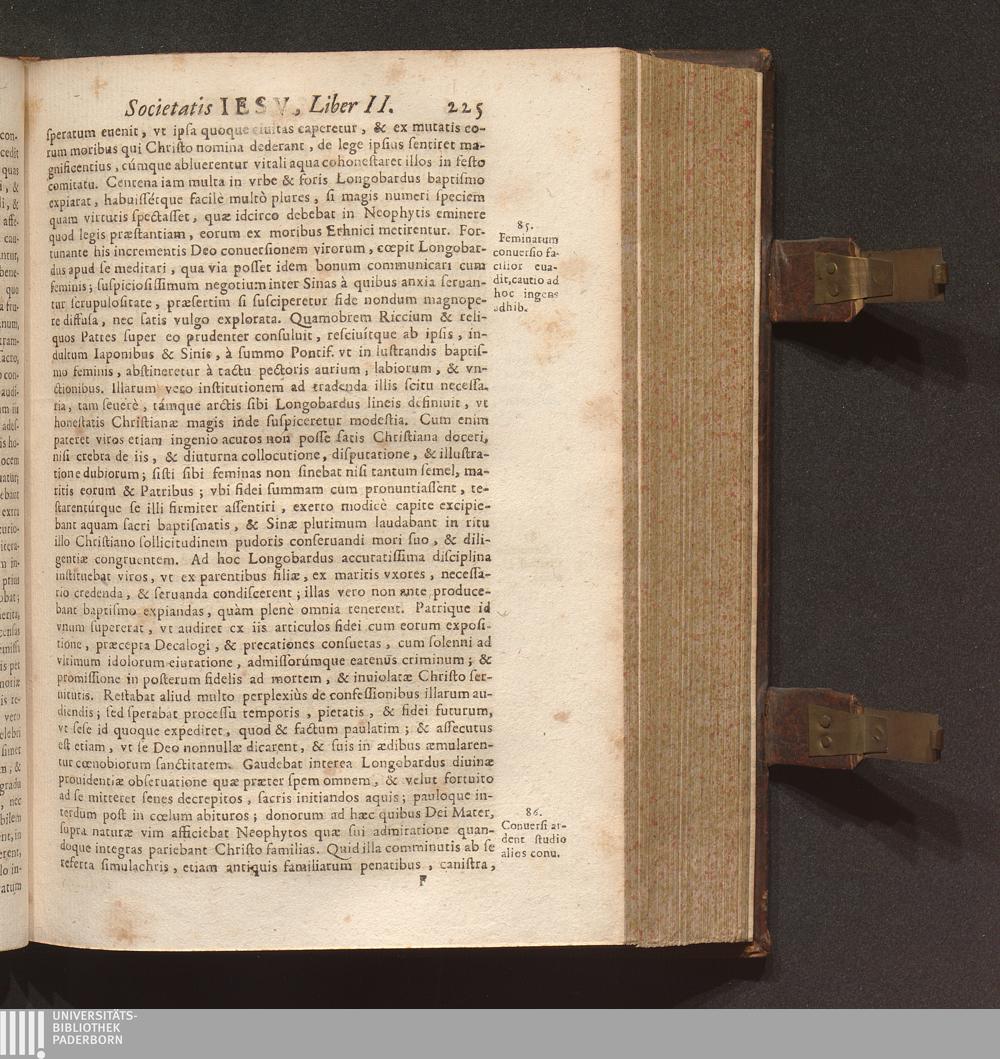 Societatis IESV, Liber II. 225
ſperatum euenit, vt ipſa quoque ciuitas caperetur, & ex mutatis eo-
rum moribus qui Chriſto nomina dederant, de lege ipſius ſentiret ma-
gnificentius, cúmque abluerentur vitali aqua cohoneſtaret illos in feſto
comitatu. Centena iam multa in vrbe & foris Longobardus baptiſmo
expiarat, habuiſſétque facilè multò plures, ſi magis numeri ſpeciem
quam virtutis ſpectaſſet, quæ idcirco debebat in Neophytis eminere
quod legis præſtantiam, eorum ex moribus Ethnici metirentur. For-
tunante his incrementis Deo conuerſionem virorum, cœpit Longobar-
dus apud ſe meditari, qua via poſſet idem bonum communicari cum
feminis; ſuspicioſiſſimum negotium inter Sinas à quibus anxia ſeruan-
tur ſcrupuloſitate, præſertim ſi ſuſciperetur fide nondum magnope-
re diffuſa, nec ſatis vulgo explorata. Quamobrem Riccium & reli-
quos Patres ſuper eo prudenter conſuluit, reſciuítque ab ipſis, in-
dultum Iaponibus & Sinis, à ſummo Pontif. vt in luſtrandis baptiſ-
mo feminis, abſtineretur à tactu pectoris aurium, labiorum, & vn-
ctionibus. Illarum vero inſtitutionem ad tradenda illis ſcitu neceſſa-
ria, tam ſeuerè, támque arctis ſibi Longobardus lineis definiuit, vt
honeſtatis Chriſtianæ magis inde ſuſpiceretur modeſtia. Cum enim
pateret viros etiam ingenio acutos non poſſe ſatis Chriſtiana doceri,
niſi crebra de iis, & diuturna collocutione, diſputatione, & illuſtra-
tione dubiorum; ſiſti ſibi feminas non ſinebat niſi tantum ſemel, ma-
ritis eorum & Patribus; vbi fidei ſummam cum pronuntiaſſent, te-
ſtarentúrque ſe illi firmiter aſſentiri, exerto modicè capite excipie-
bant aquam ſacri baptiſmatis, & Sinæ plurimum laudabant in ritu
illo Chriſtiano ſollicitudinem pudoris conſeruandi mori ſuo, & dili-
gentiæ congruentem. Ad hoc Longobardus accuratiſſima diſciplina
inſtituebat viros, vt ex parentibus filiæ, ex maritis vxores, neceſſa-
rio credenda, & ſeruanda condiſcerent; illas vero non ante produce-
bant baptiſmo expiandas, quàm plenè omnia tenerent. Patrique id
vnum ſupererat, vt audiret ex iis articulos fidei cum eorum expoſi-
tione, præcepta Decalogi, & precationes conſuetas, cum ſolenni ad
vltimum idolorum eiuratione, admiſſorúmque eatenus criminum; &
promiſſione in poſterum fidelis ad mortem, & inuiolatæ Chriſto ſer-
uitutis. Reſtabat aliud multo perplexiùs de confeſſionibus illarum au-
diendis; ſed ſperabat proceſſu temporis, pietatis, & fidei futurum,
vt ſeſe id quoque expediret, quod & factum paulatim; & aſſecutus
eſt etiam, vt ſe Deo nonnullæ dicarent, & ſuis in ædibus æmularen-
tur cœnobiorum ſanctitatem. Gaudebat interea Longobardus diuinæ
prouidentiæ obſeruatione quæ præter ſpem omnem, & velut fortuito
ad ſe mitteret ſenes decrepitos, ſacris initiandos aquis; pauloque in-
terdum poſt in cœlum abituros; donorum ad hæc quibus Dei Mater,
ſupra naturæ vim afficiebat Neophytos quæ ſui admiratione quan-
doque integras pariebant Chriſto familias. Quid illa comminutis ab ſe
referta ſimulachris, etiam antiquis familiarum penatibus, caniſtra,
F
85.
Feminarum
conuerſio fa-
cilior eua-
dit, cautio ad
hoc ingens
adhib.
86.
Conuerſi ar-
dent ſtudio
alios conu.
con-
cedit
quas
i, &
li, &
affe-
cau-
bene-
que
extra
ptius
is pet
vero
gradu
, nec
bilem
lo in-
atum
UNIVERSITÄTS-
BIBLIOTHEK
PADERBORN